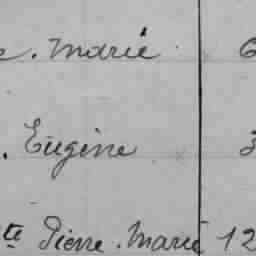 e. Marie 6
. Eugène 3
te Pierre. Marie 12